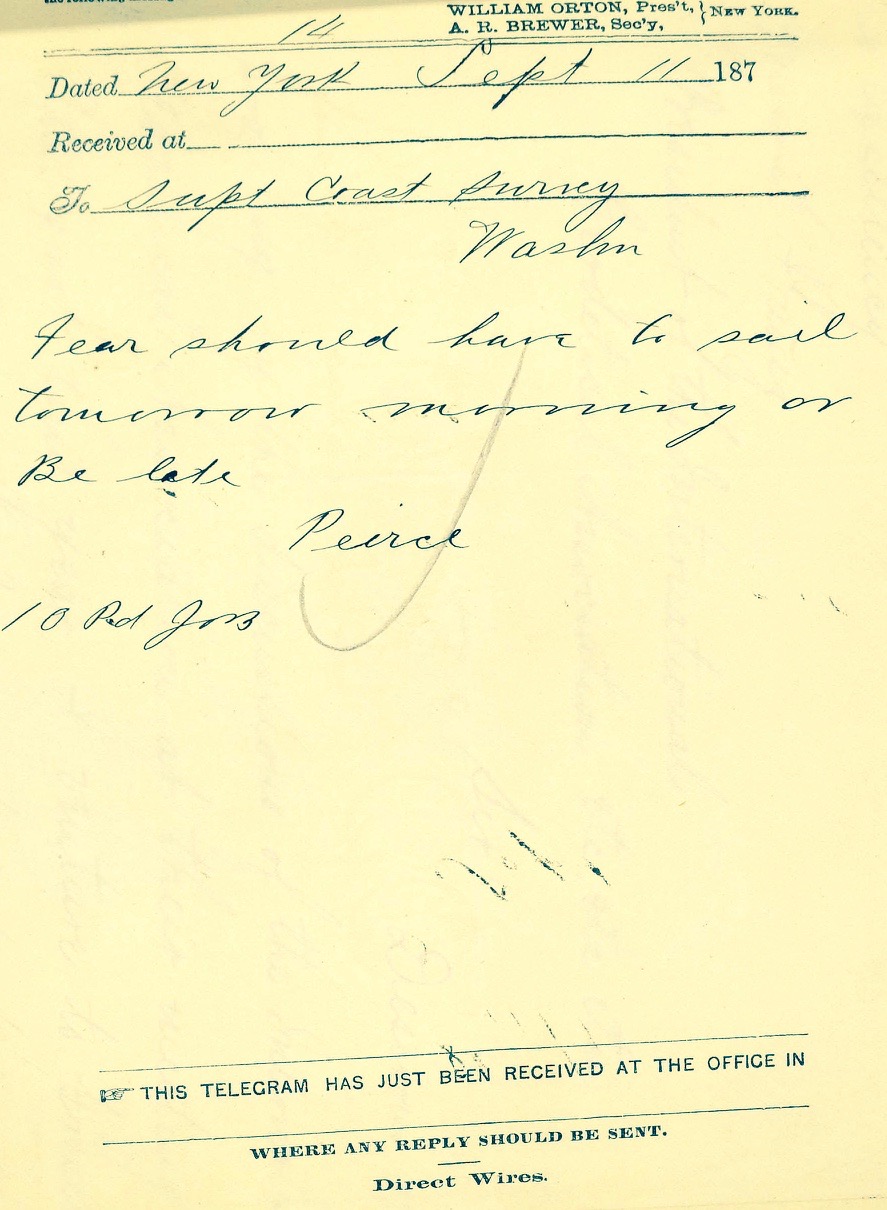 WILLIAM ORTON, Pres't, } NEW YORK.
A. R. BREWER, Sec'y,
14
Dated New York Sept 11 187
Received at
To Supt Coast Survey
Washn
Fear should have to sail
tomorrow morning or
Be late
Peirce
10 Pd JoB
☞ THIS TELEGRAM HAS JUST BEEN RECEIVED AT THE OFFICE IN
WHERE ANY REPLY SHOULD BE SENT.
Direct Wires.